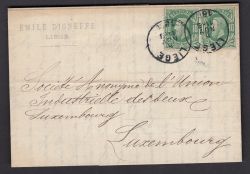 EMILE DIGNEFFE
LIEGE
LIEGE
LIEGE
Société Anonyme de l'Union
Industrielle des
Luxembourg
Luxembourg